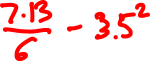 \frac{7.13}{6} - 3.5^2